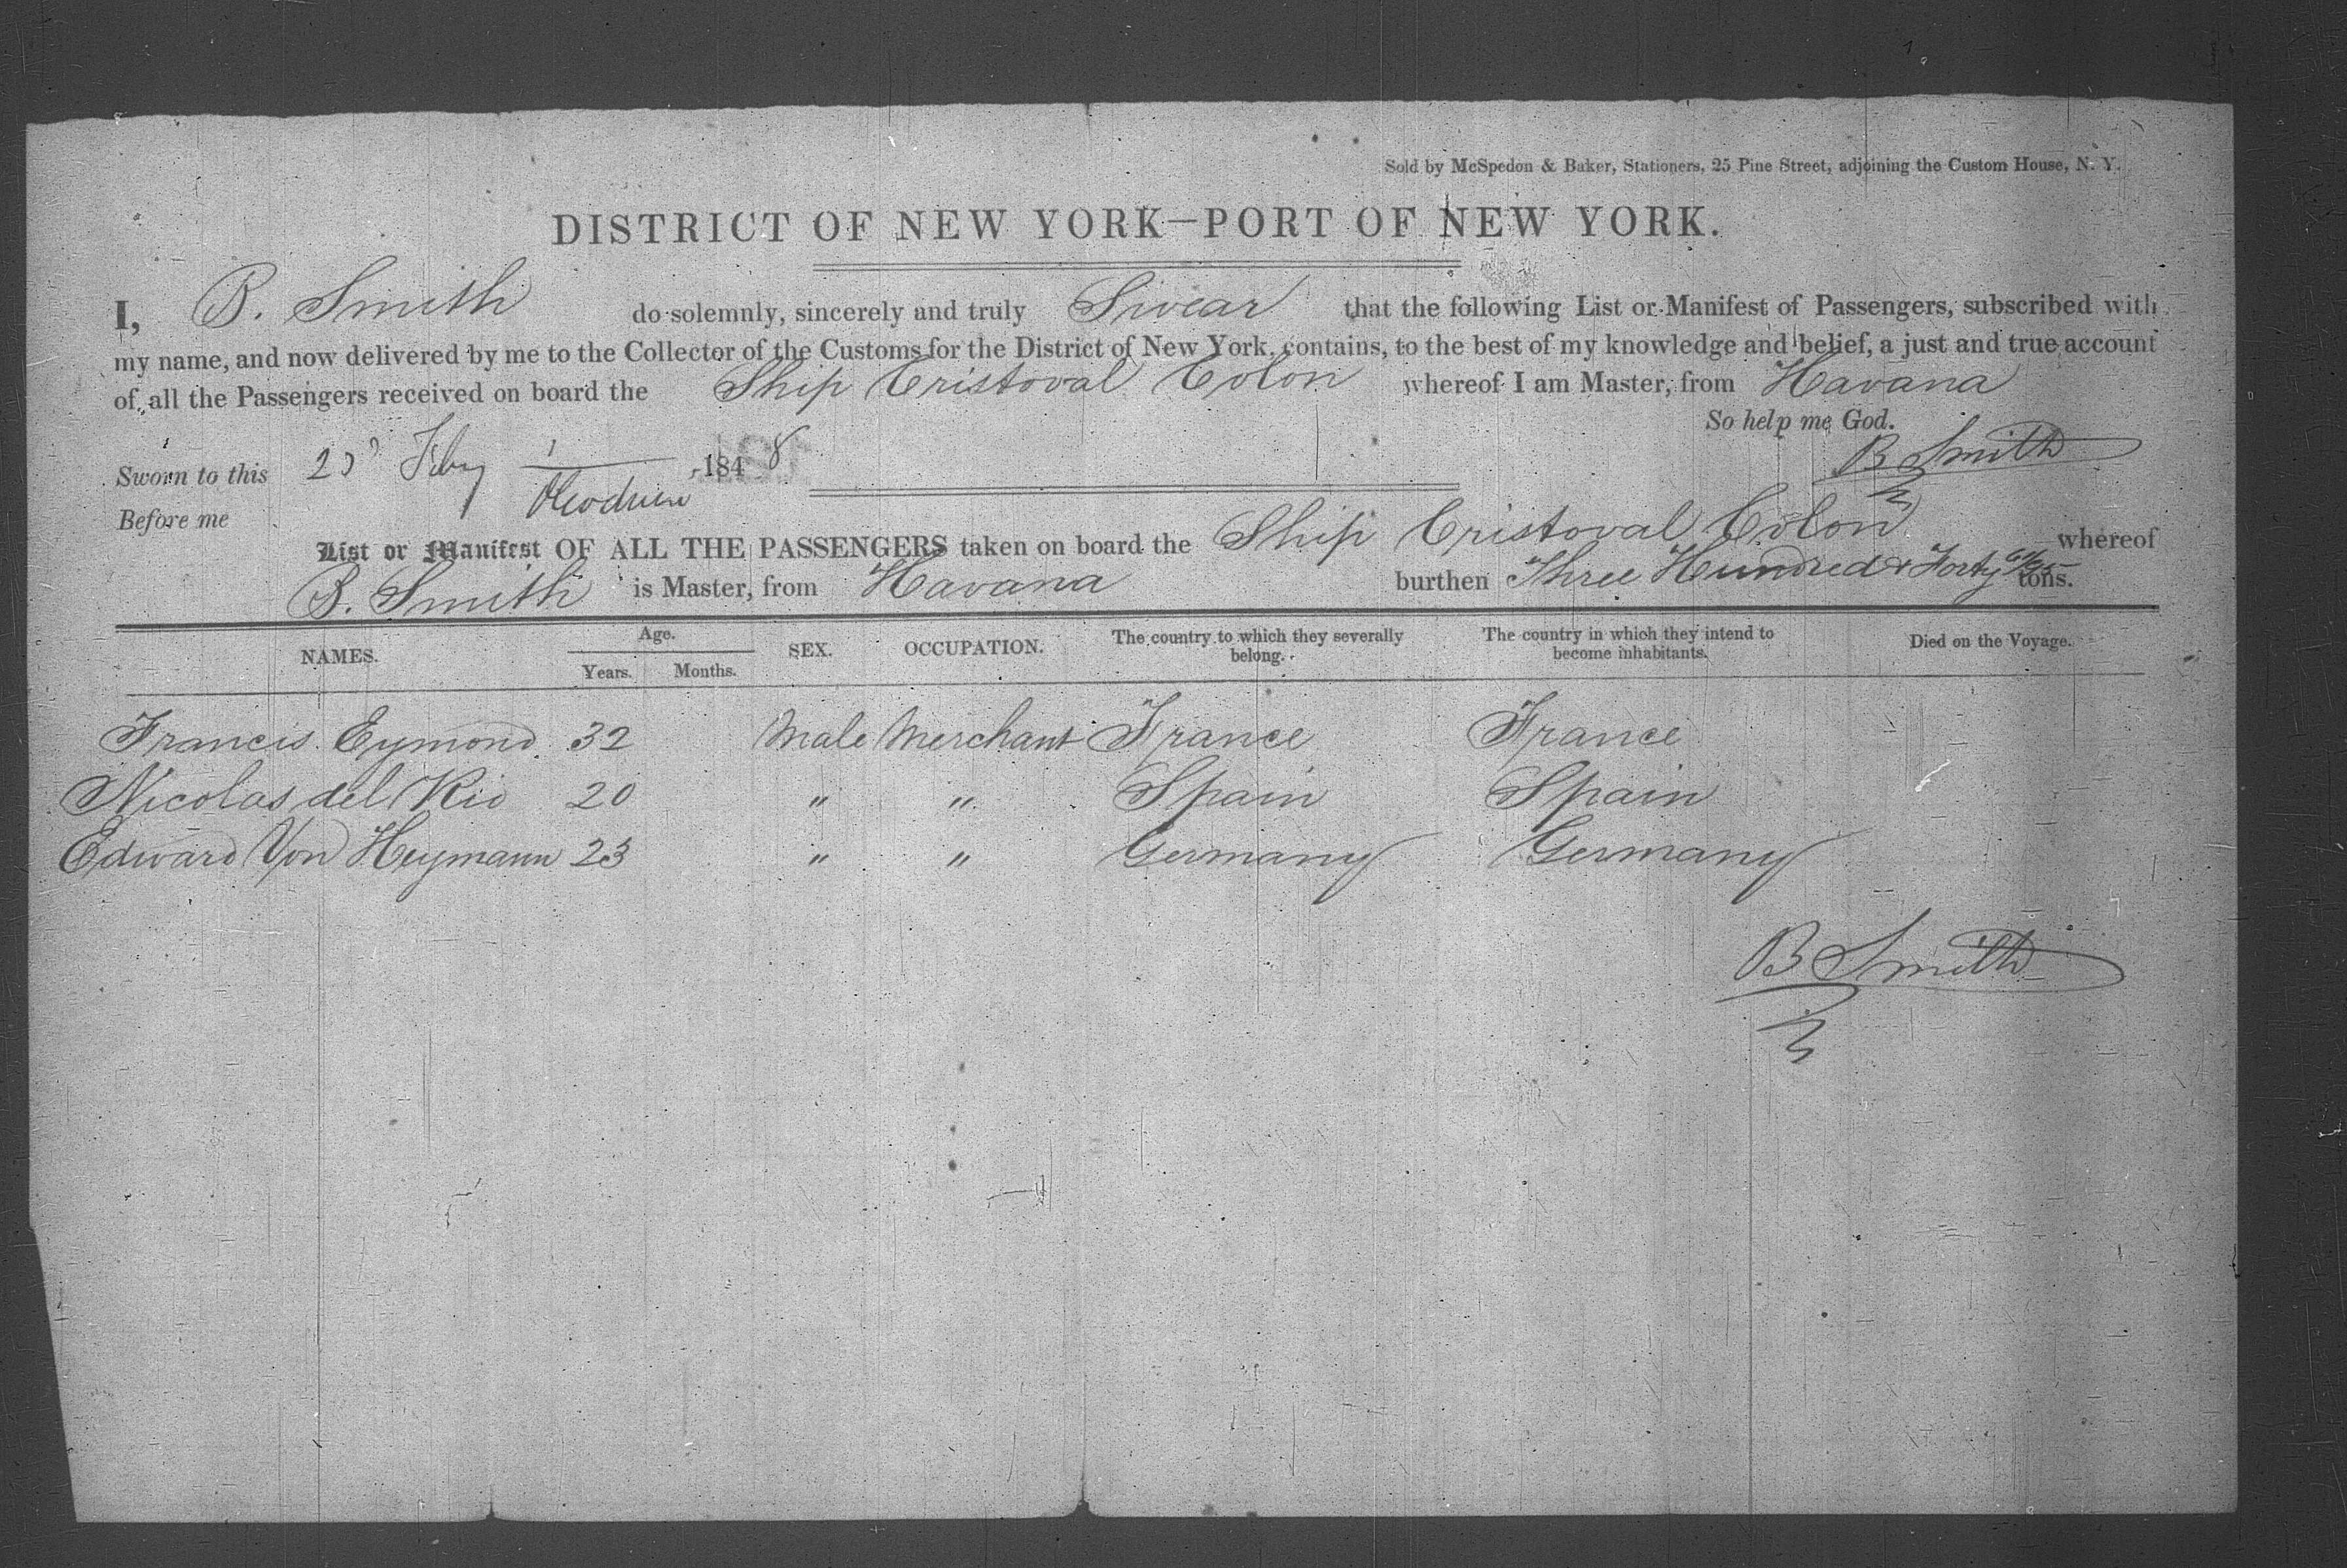 Sold by McSpedon & Baker, Stationers, 25 Pine Street, adjoining the Custom House, N. Y.
DISTRICT OF NEW YORK—PORT OF NEW YORK.
I, B. Smith do solemnly, sincerely and truly Swear that the following List or Manifest of Passengers, subscribed with
my name, and now delivered by me to the Collector of the Customs for the District of New York, contains, to the best of my knowledge and belief, a just and true account
of all the Passengers received on board the Ship Cristoval Colon whereof I am Master, from Havana
So help me God.
Sworn to this Feby 1848 B Smith
Before me
List or Manifest OF ALL THE PASSENGERS taken on board the Ship Cristoval Colon whereof
B. Smith is Master, from Havana burthen Three Hundred & Forty tons.
NAMES. Age. Years. Months. SEX. OCCUPATION. The country to which they severally belong. The country in which they intend to become inhabitants. Died on the Voyage.
Francis Eymond 32 Male Merchant France France
Nicolas del Rio 20 " " Spain Spain
Edward Von Heymann 23 " " Germany Germany
B Smith